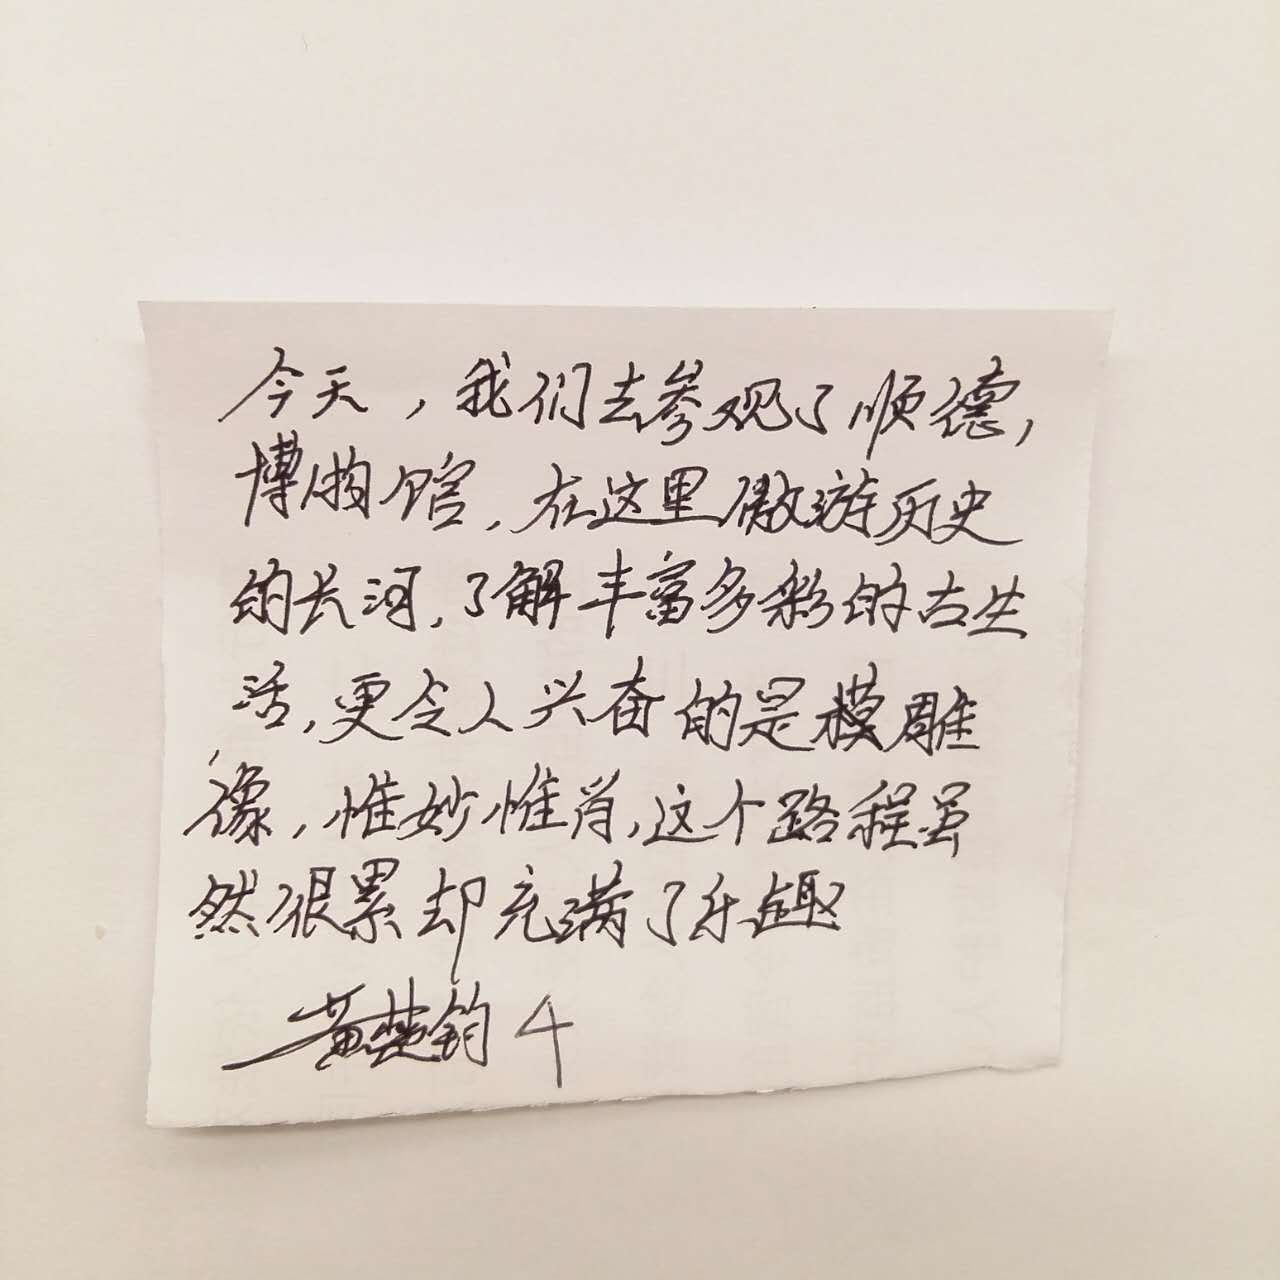 今天，我们去参观了顺德，
博物馆，在这里傲游历史
的长河，了解丰富多彩的古生
活，更令人兴奋的是模雕
像，惟妙惟肖，这个路程虽
然很累却充满了乐趣
黄楚钧 4